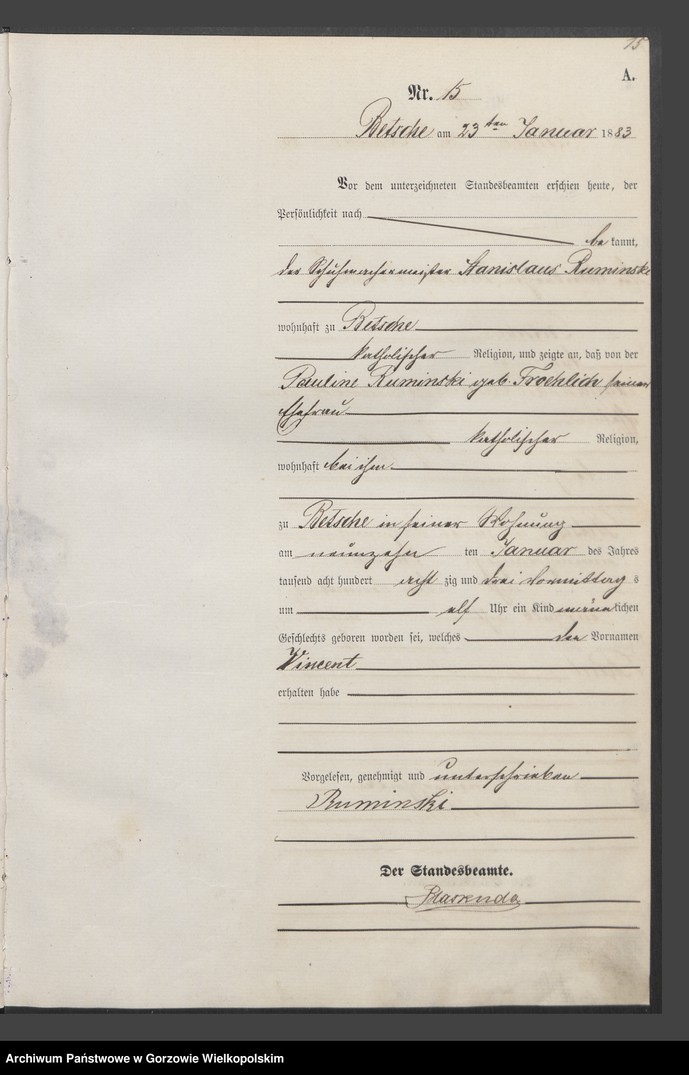 15
A.
Nr. 15
Betsche am 23ten Januar 1883
Vor dem unterzeichneten Standesbeamten erschien heute, der
Persönlichkeit nach
bekannt,
der Schuhmachermeister Stanislaus Ruminski
wohnhaft zu Betsche
katholischer Religion, und zeigte an, daß von der
Pauline Ruminski geb. Froehlich seiner
Ehefrau
katholischer Religion,
wohnhaft bei ihm
zu Betsche in seiner Wohnung
am neunzehn ten Januar des Jahres
tausend acht hundert acht zig und drei Vormittag s
um elf Uhr ein Kind männlichen
Geschlechts geboren worden sei, welches den Vornamen
Vincent
erhalten habe
Vorgelesen, genehmigt und unterschrieben
Ruminski
Der Standesbeamte.
Archiwum Państwowe w Gorzowie Wielkopolskim